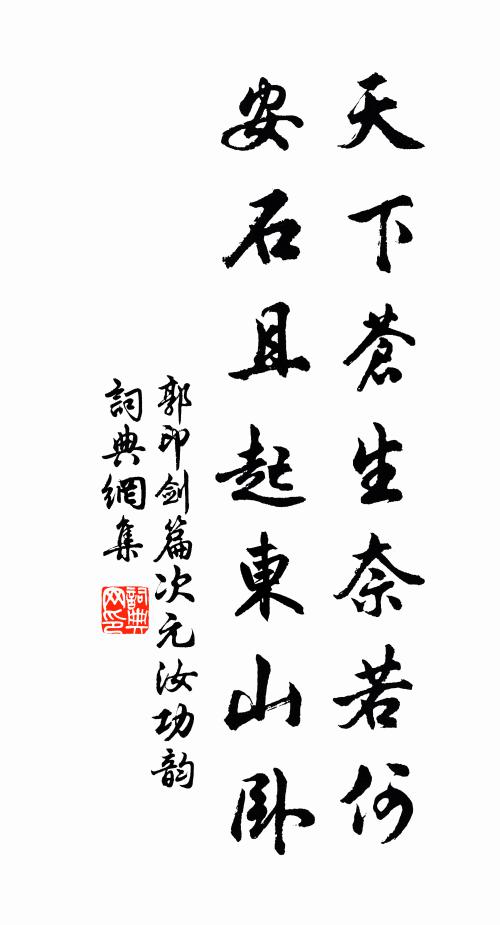 天下蒼生奈若何
安石且起東山臥
郭印劍篇次元汝功韵
詞典網集
詞典网印